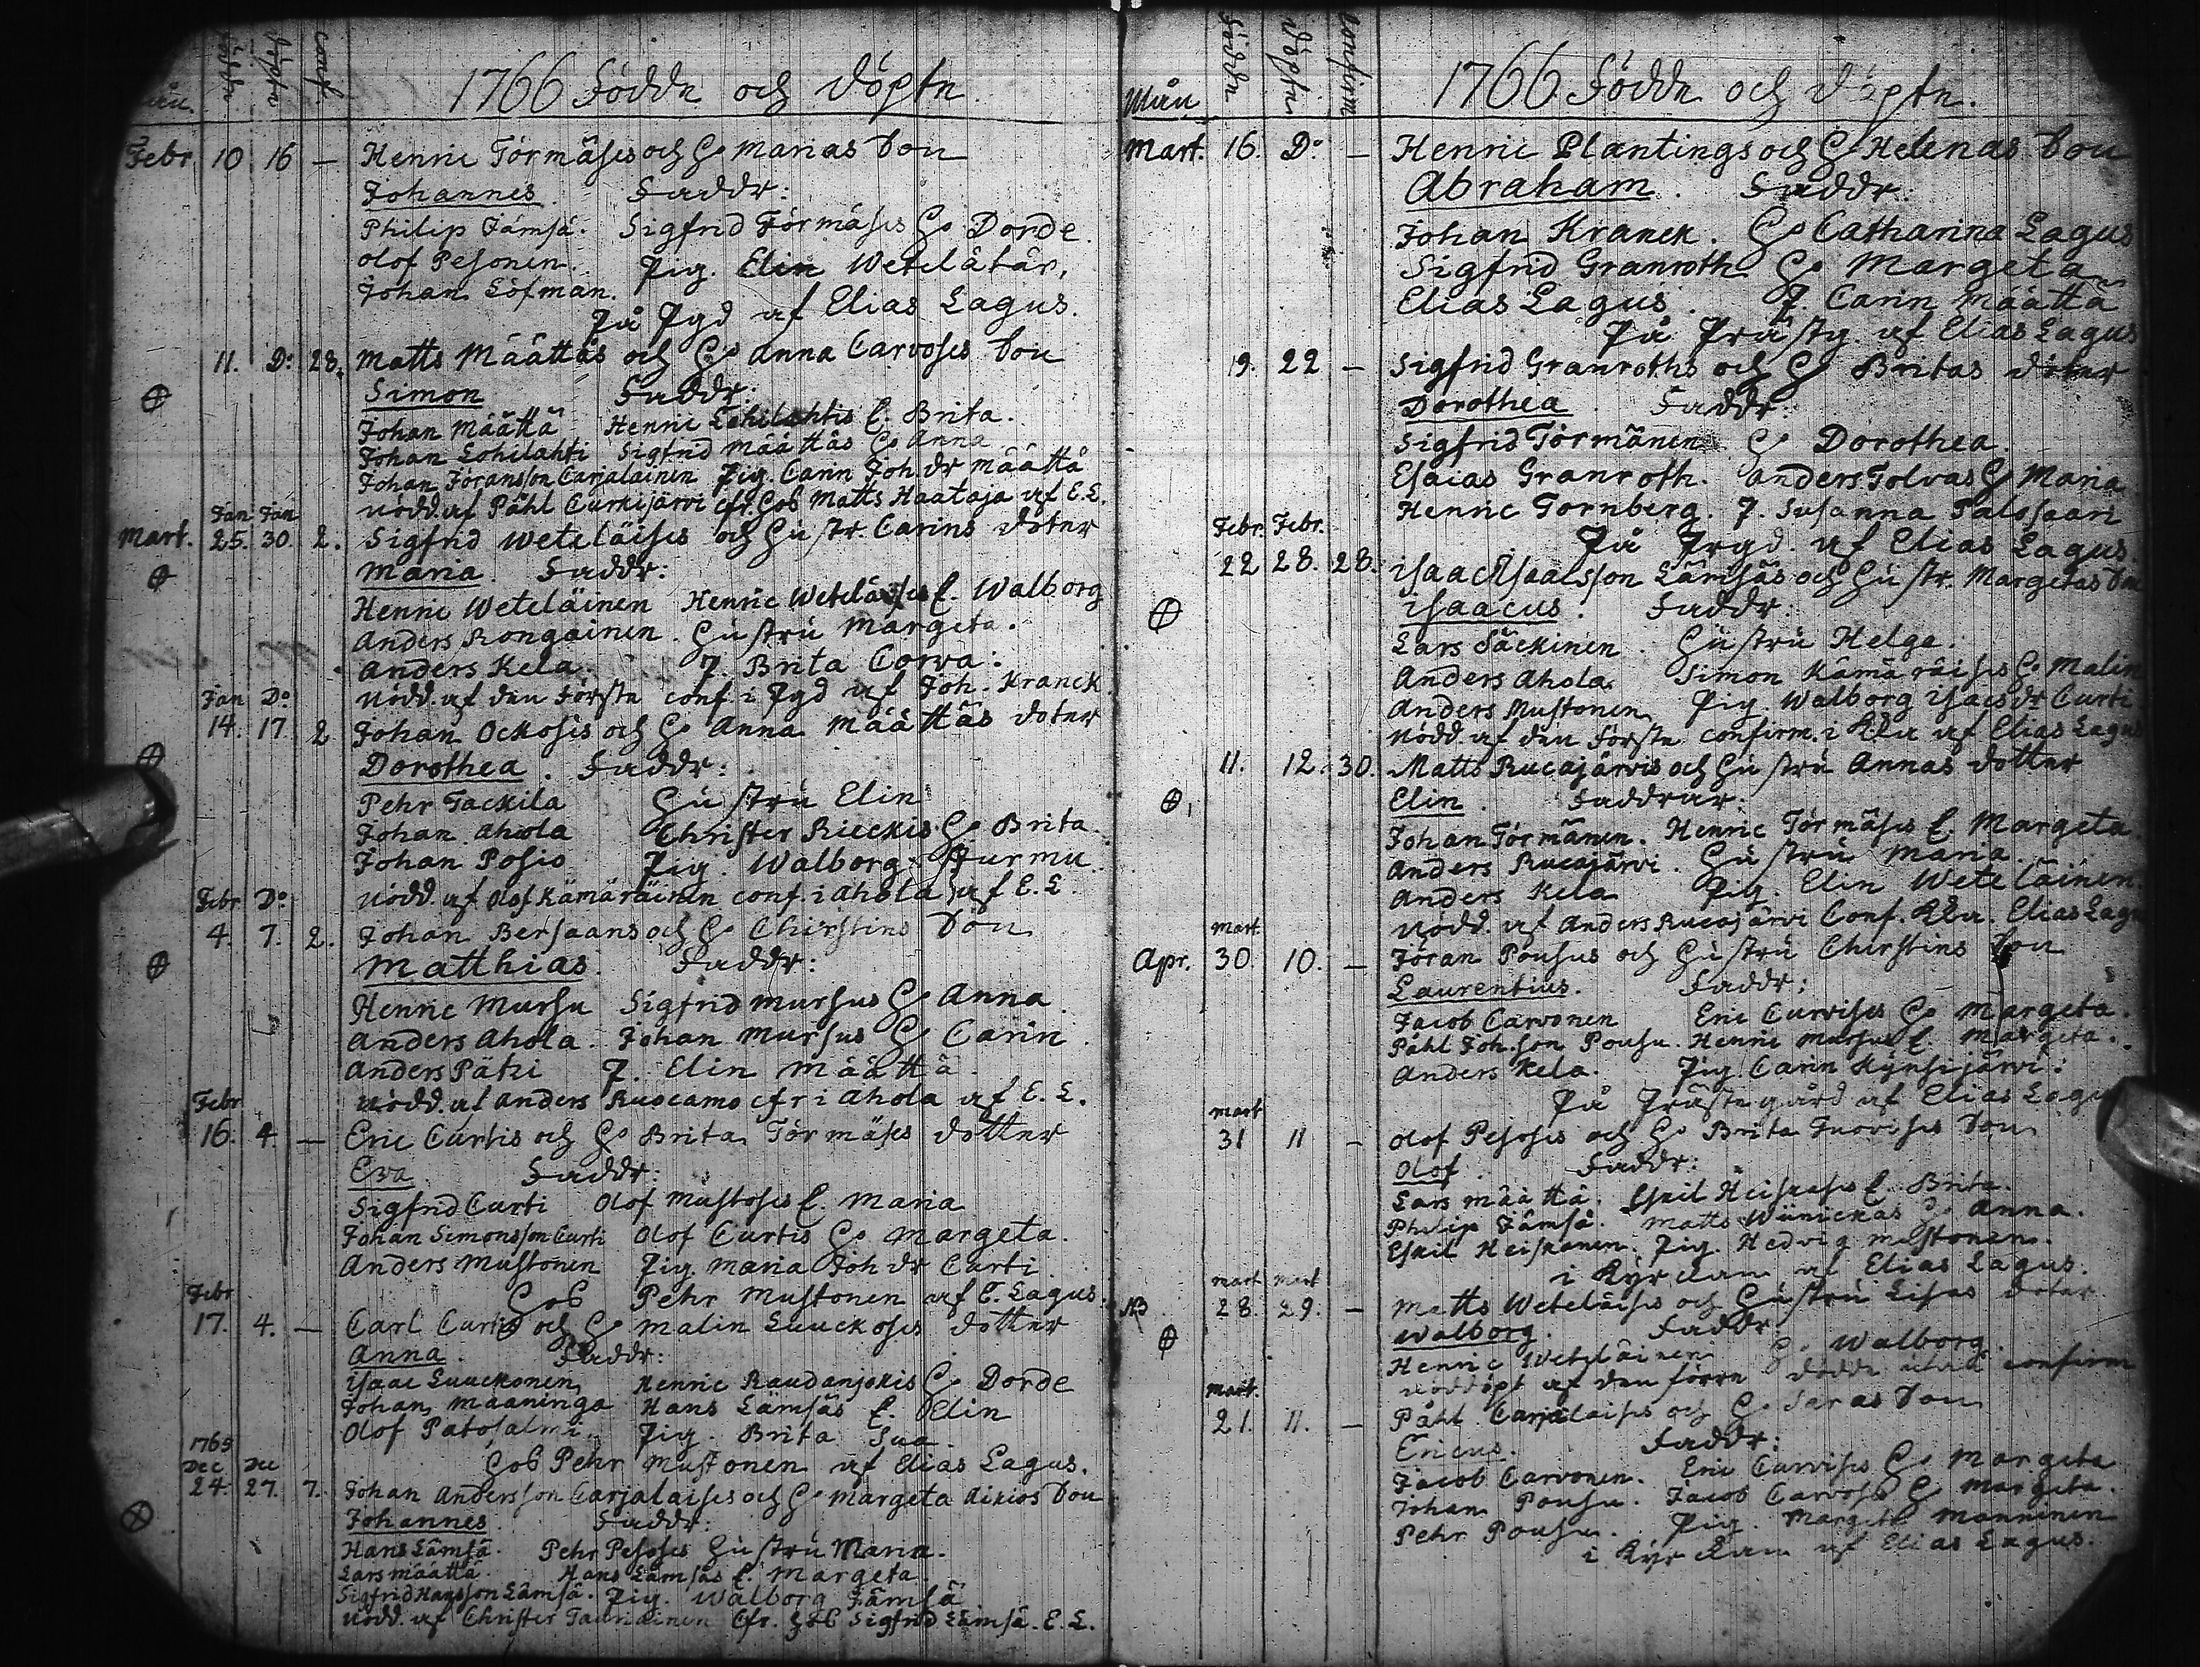 födde döpte conf.
1766 Födde och Döpte.
Febr. 10 16 — Henric Törmäses och H. Marias Son
Johannes. Faddr:
Philip Jämsä. Sigfrid Törmäses H. Dorde.
Olof Pesonen. Pig. Elin Wetelätär,
Johan Löfman.
På Pgd af Elias Lagus.
11. Do. 28. Matts Määttäs och H. Anna Carvoses Son
Simon Faddr:
Johan Määttä Henric Lohilahtis E. Brita.
Johan Lohilahti Sigfrid Määttäs H. Anna
Johan Jöransson Carjalainen Pig. Carin Joh. dr Määttä
Nödd. af Påhl Curkijärvi cfr. Hos Matts Haataja af E. L.
Jan Jan
Mart. 25. 30. 2. Sigfrid Weteläises och Hustr. Carins doter
Maria. Faddr:
Henric Weteläinen Henric Weteläises E. Walborg
Anders Rongainen. Hustru Margeta.
Anders Kela. P. Brita Corva.
Jan Do. Nödd. af den Förste conf. i Pgd af Joh. Kranck
14. 17. 2 Johan Ockosis och H. Anna Määttäs doter
Dorothea. Faddr:
Pehr Tackila Hustru Elin
Johan Ahola Christer Rieckis H. Brita.
Johan Posio Pig. Walborg Jurmu
Febr. Do. Nödd. af Olof Kämäräinen conf. i Ahola af E. L.
4. 7. 2. Johan Bersaans och H. Chirstins Son
Matthias. Faddr:
Henric Mursu Sigfrid Mursus H. Anna
Anders Ahola. Johan Mursus H. Carin.
Anders Pätzi P. Elin Määttä
Febr Nödd. af Anders Ruocamo cfr i Ahola af E. L.
16. 4. — Eric Curtis och H. Brita Törmäses dotter
Eva. Faddr:
Sigfrid Curti Olof Mustoses E. Maria
Johan Simonsson Curti Olof Curtis H. Margeta.
Anders Mustonen Pig. Maria Joh dr Curti
Febr Hos Pehr Mustonen af E. Lagus.
17. 4. — Carl Curtis och H. Malin Luuckoses dotter
Anna. Faddr:
Isaac Luuckonen Henric Raudanjokis H. Dorde
Johan Maaninga Hans Lämsäs E. Elin
Olof Patosalmi. Pig. Brita Sua.
1765 Dec Dec Hos Pehr Mustonen af Elias Lagus.
24. 27. 7. Johan Andersson Carjalaises och H. Margeta Aikios Son
Johannes. Faddr:
Hans Lämsä. Pehr Pesoses Hustru Maria.
Lars Määttä. Hans Lämsäs E. Margeta.
Sigfrid Hansson Lämsä. Pig. Walborg Jämsä
Nödd. af Christer Tauriainen Cfr. Hos Sigfrid Lämsä. E. L.
Mån. Födde Döpte Confirm
1766 Födde och Döpte.
Mart. 16. Do. — Henric Plantings och H. Helenas Son
Abraham. Faddr:
Johan Kranck. H. Catharina Lagus
Sigfrid Granroth H. Margeta
Elias Lagus. P. Carin Määttä
På Prästg. af Elias Lagus
19. 22 — Sigfrid Granroths och H. Britas doter
Dorothea. Faddr:
Sigfrid Törmänen H. Dorothea.
Esaias Granroth. Anders Tolvas H. Maria
Henric Tornberg. P. Susanna Palosaari
Febr. Febr. På Prgd. af Elias Lagus.
22 28. 28. Isaac Isaacsson Lämsäs och Hustr. Margetas Son
Isaacus. Faddr:
Lars Säckinen. Hustru Helge.
Anders Ahola. Simon Kämäräises H. Malin
Anders Mustonen Pig. Walborg Isacsdr Curti
Nödd af den Förste confirm. i af Elias Lagus
11. 12. 30. Matts Rucajärvis och Hustru Annas dotter
Elin. Faddrar:
Johan Törmänen. Henric Törmäses E. Margeta
Anders Rucajärvi. Hustru Maria.
Anders Kela Pig. Elin Weteläinen.
Mart. Nödd. af Anders Rucajärvi Conf. Elias Lagus
Apr. 30. 10. — Jöran Pousus och Hustru Chirstins Son
Laurentius. Faddr:
Jacob Carvonen Eric Curvises H. Margeta.
Påhl Joh.son Pousu. Henric Mursus E. Margeta.
Anders Kela. Pig. Carin Kynsijärvi:
Mart På Prästegård af Elias Lagus
31 11 — Olof Pesoses och H. Brita Juovises Son
Olof. Faddr:
Lars Määttä. Eskil Heiskases E. Brita.
Philip Jämsä. Matts Winickas H. Anna.
Eskil Heiskanen. Pig. Hedvig Mustonen.
Mart Mart i Kyrckan af Elias Lagus.
NB 28. 29. — Matts Weteläises och Hustru Lisas doter
Walborg. Faddr
Henric Weteläinen H. Walborg
Mart. Nöddöpt af den förre dödde utan confirm
21. 11. — Påhl Carjalaises och H. Saras Son
Ericus. Faddr:
Jacob Carvonen. Eric Curvises H. Margeta
Johan Pousu. Jacob Carvoses H. Margeta.
Pehr Pousu. Pig. Margeta Manninen
i Kyrckan af Elias Lagus.